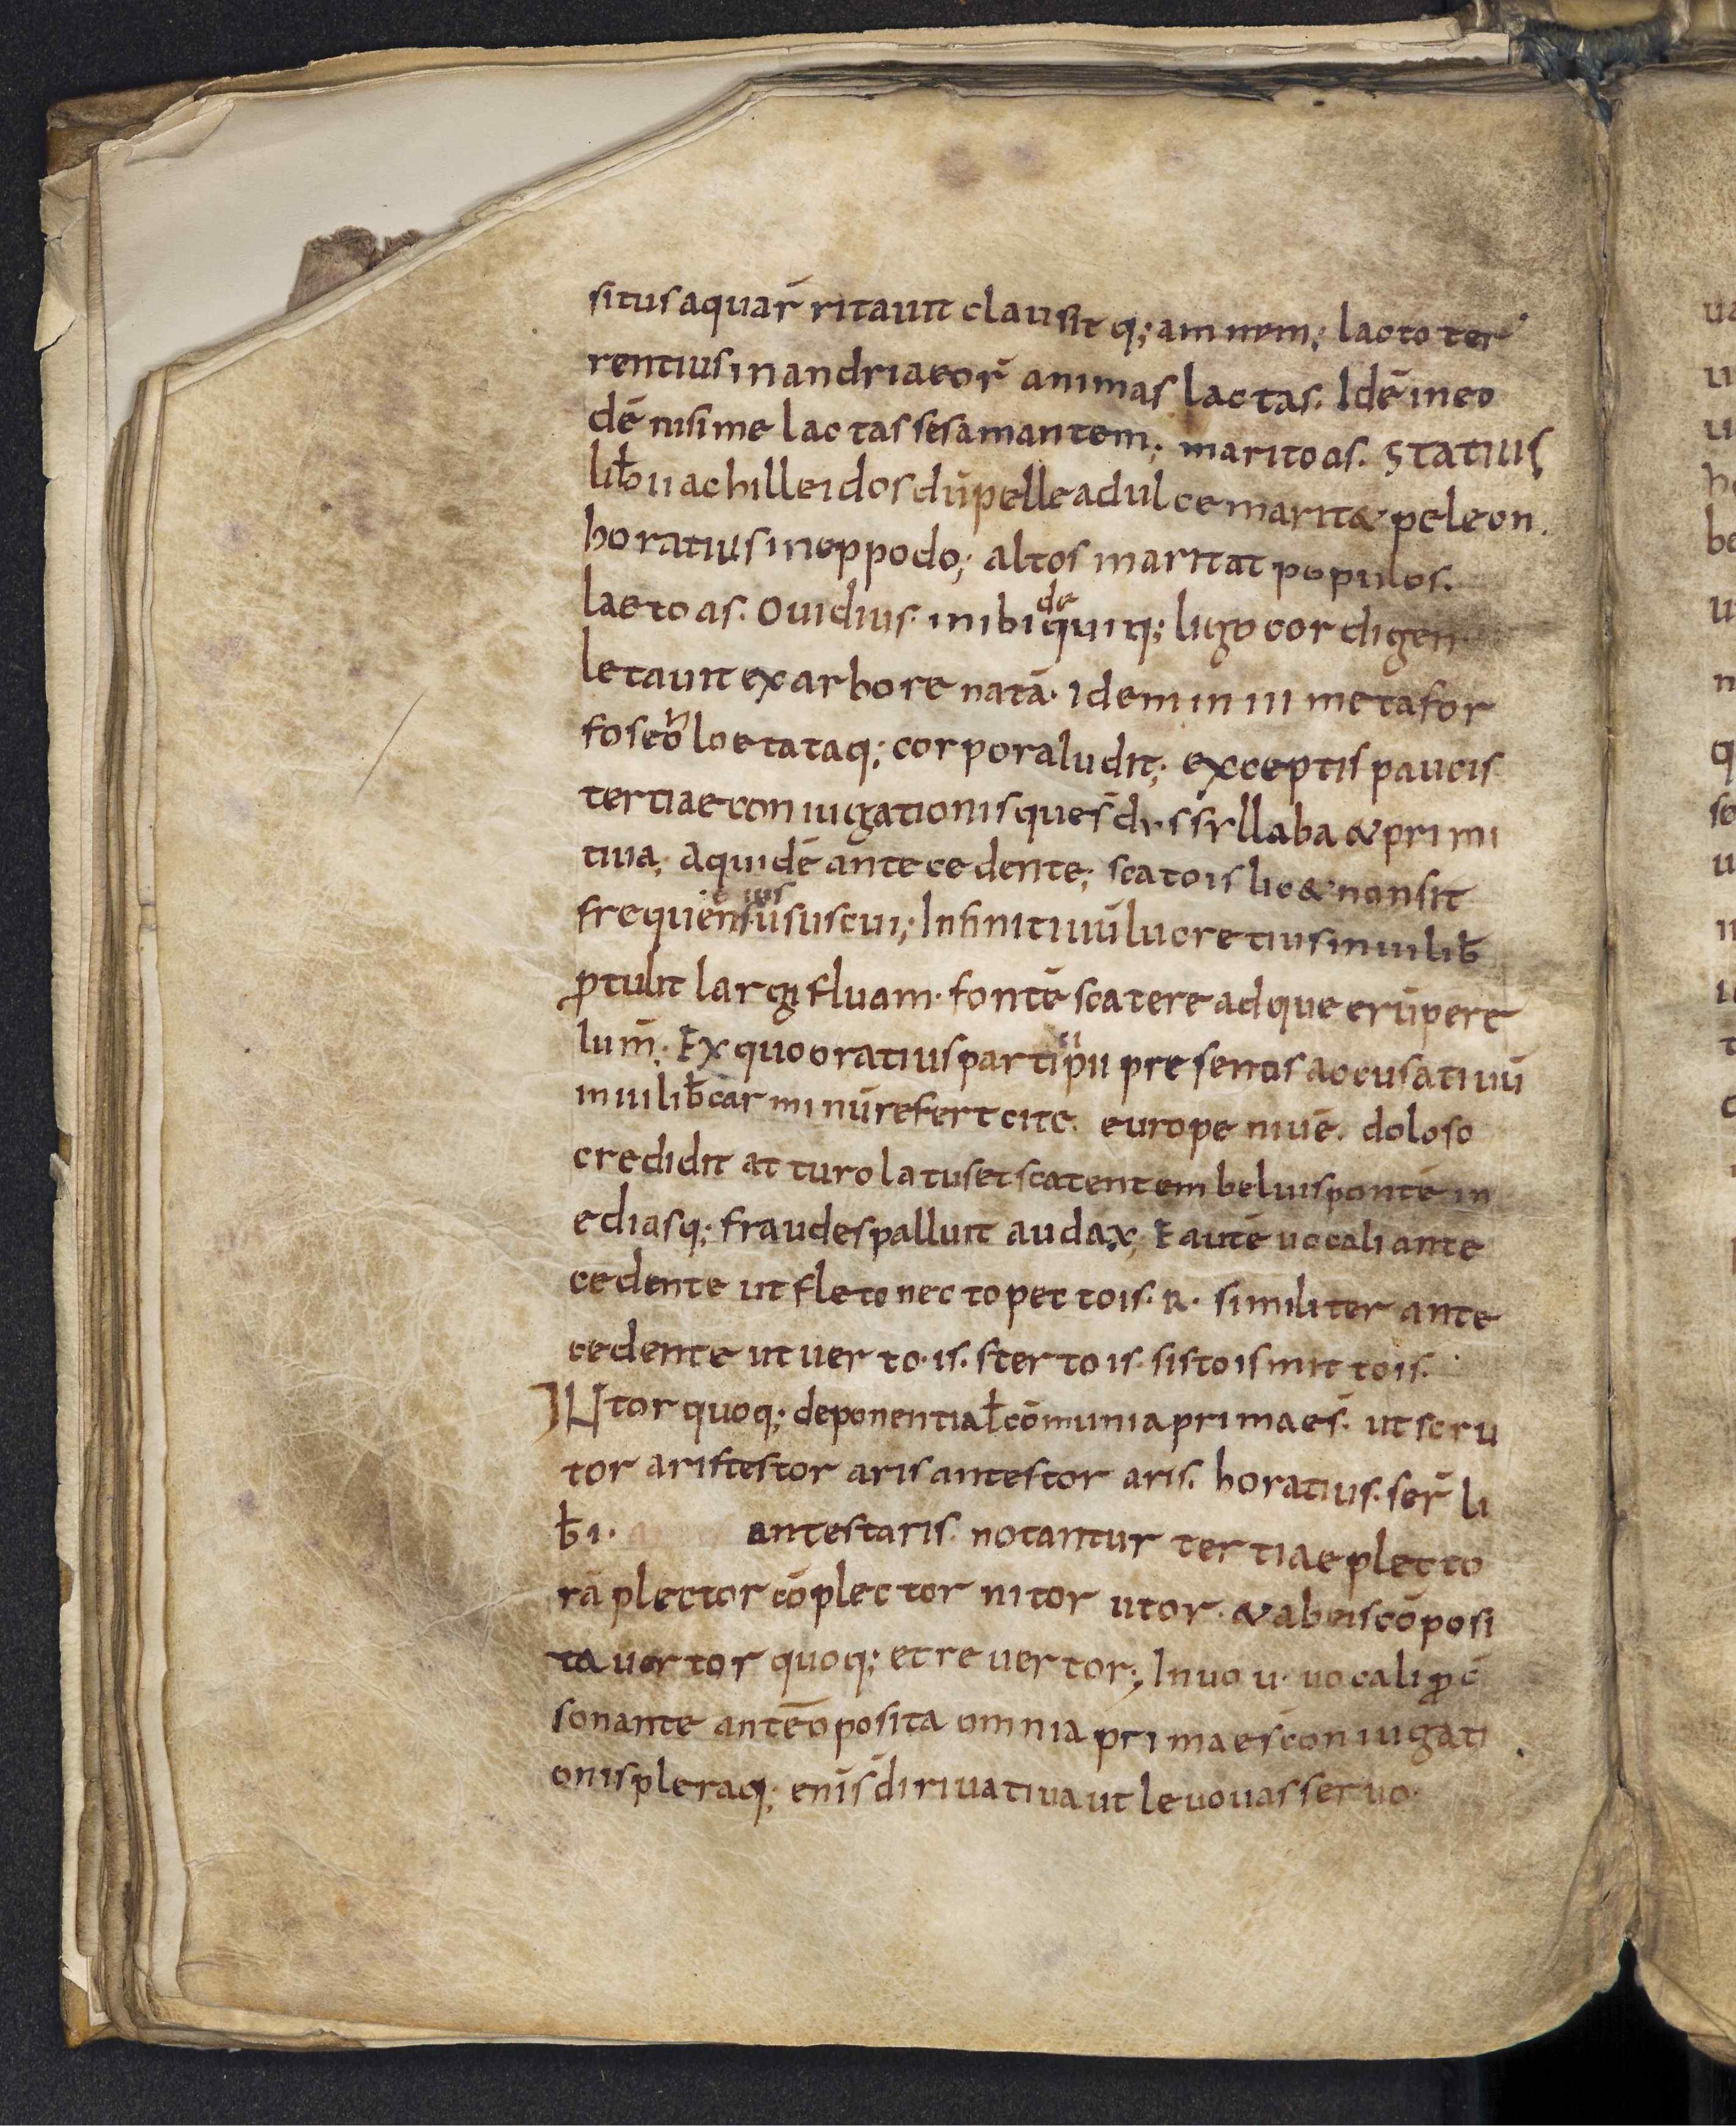 situs aquar̄ ritauit clausit q; amnem; lacto ter
rentius in andria eor̄ animas lactas. Idē in eo
dē nisi me lactasses amantem; marito as. Statius
lib̄ ii achilleidos dū pellea dulce marit& peleon.
horatius in eppodo; altos maritat populos.
laeto as. Ouidius in ibi de quinq; ligo cor digen
letauit ex arbore natā. Idem in iii metafor
foseoh loetataq; corpora ludit; exceptis paucis
tertiae coniugationis que s̄ dissyllaba & primi
tiua; a quidē antecedente; scato is lic& non sit
frequens ius ūsus cui; Infinitiuū lucretius in ui lib̄
ptulit largi fluam fontē scatere adque erūpere
lum̄. Ex quo oratius partici pii presentis accusatiuū
in iii lib̄ carminū refert cite. europe niuē. doloso
credidit at turo latus et scatentem beluis pontē in
ediasq; fraudes palluit audax; E autē uocali ante
cedente ut fleto necto pecto is. R. similiter ante
cedente ut uerto is. sterto is. sisto is mitto is.
IN tor quoq; deponentia ł cōmunia primae s̄. ut scru
tor aris testor aris antestor aris. horatius. ser̄ li
b̄ i. antestaris. notantur tertiae plecto
r ā plector cōplector nitor utor. & ab eis cōposi
ta uertor quoq; et reuertor; In uo u. uocali p c̄
sonante ante ō posita omnia primae s̄ coniugati
onis pleraq; eni s̄ diriuatiua ut leuo uas seruo.